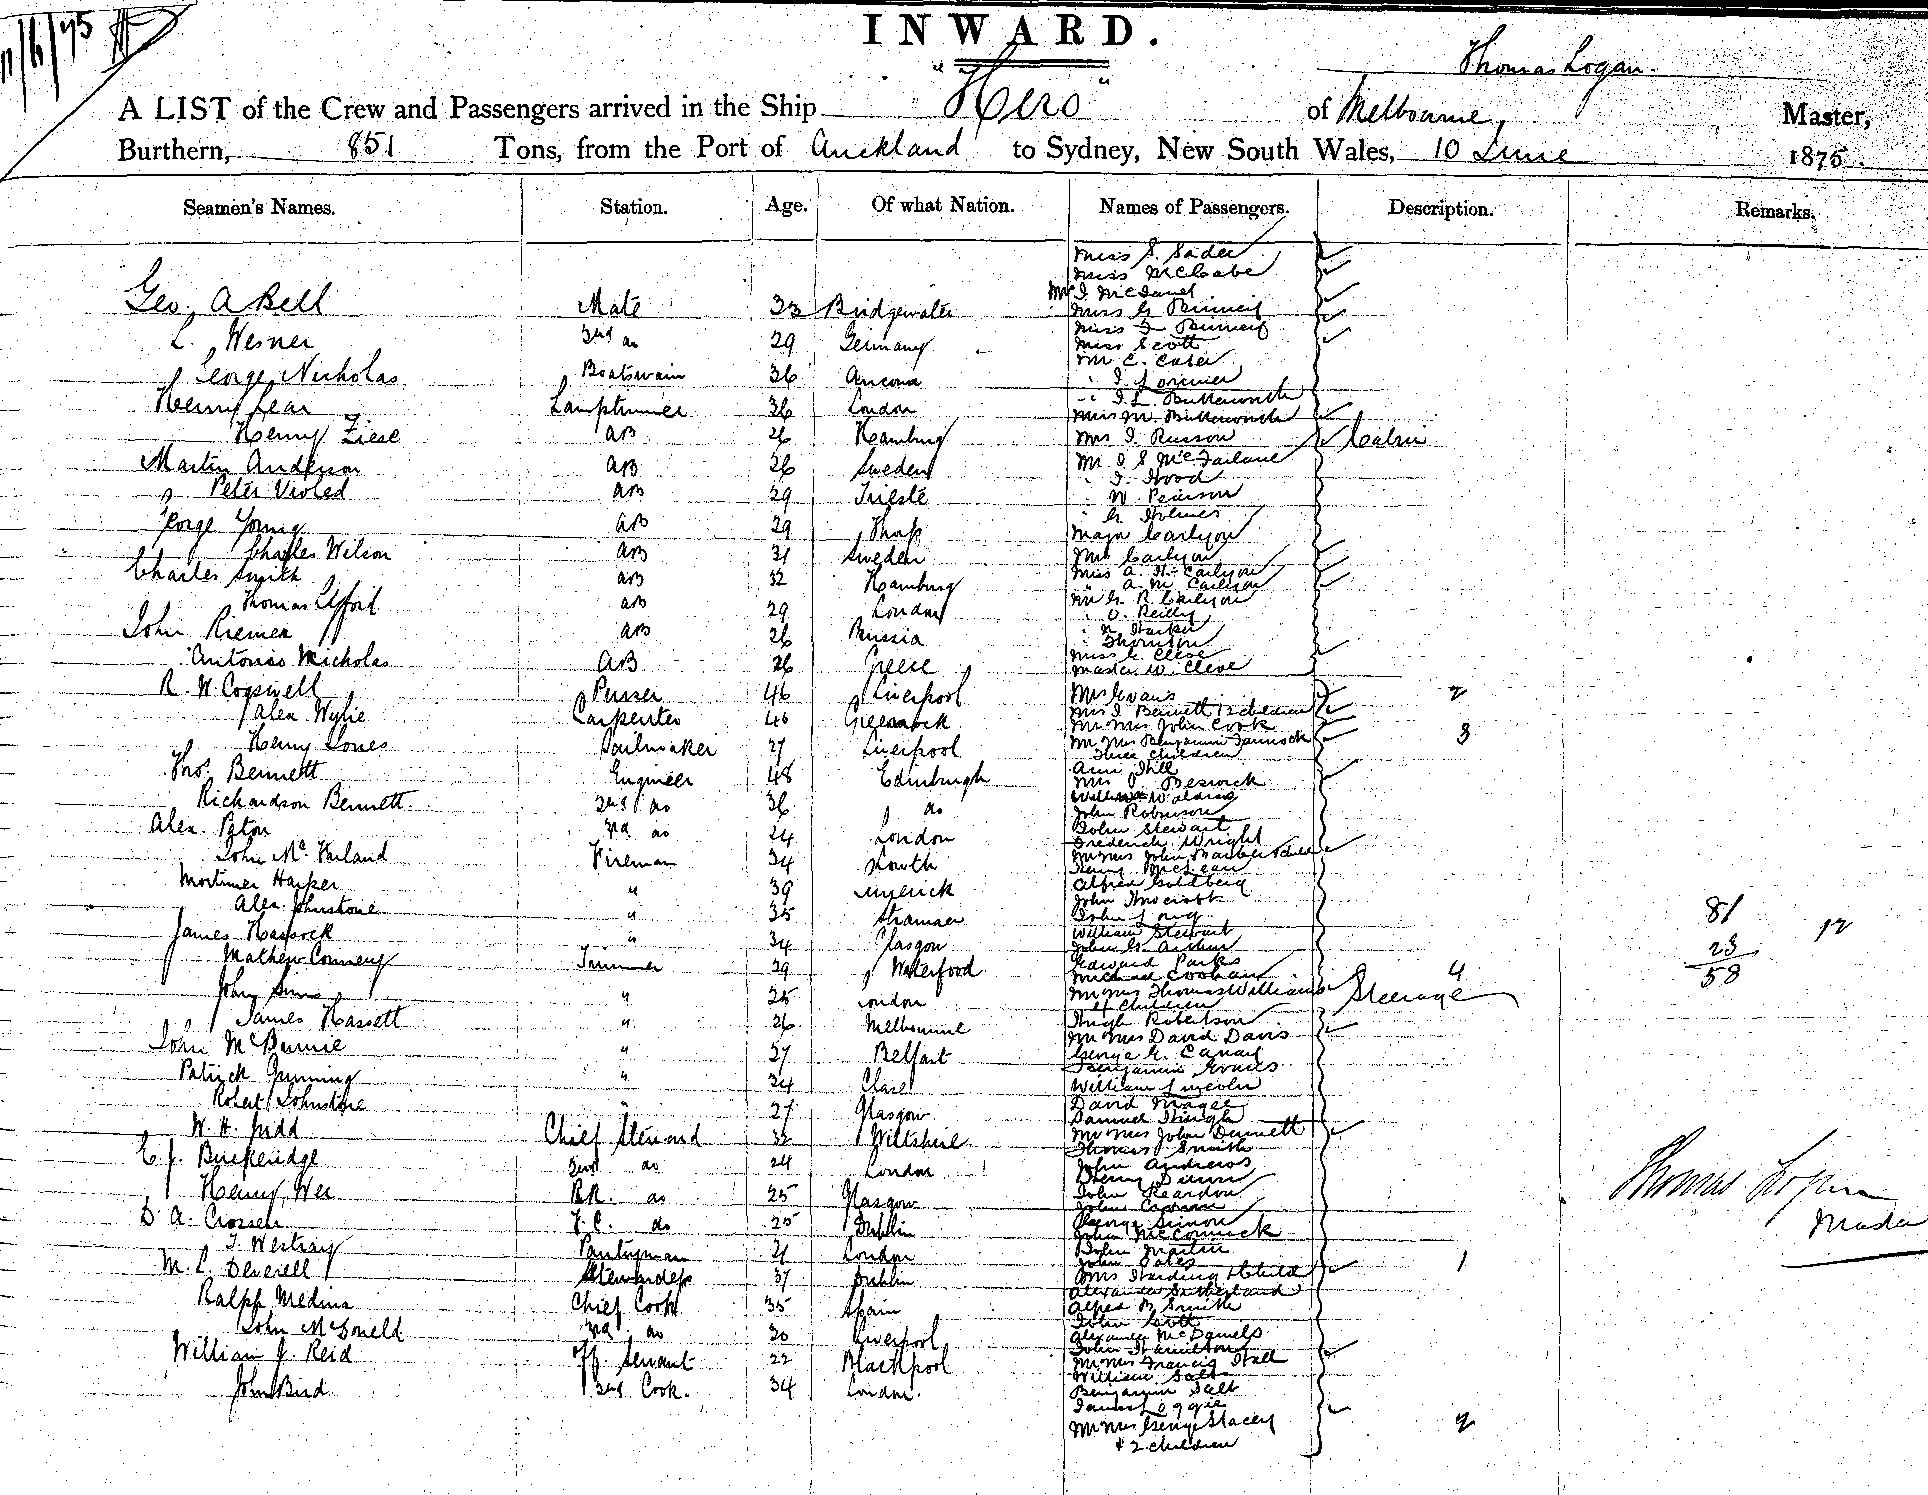 11/6/75
INWARD.
Thomas Logan
A LIST of the Crew and Passengers arrived in the Ship "Hero" of Melbourne, Master,
Burthern, 851 Tons, from the Port of Auckland to Sydney, New South Wales, 10 June 1875
Seamen's Names. Station. Age. Of what Nation. Names of Passengers. Description. Remarks.
Miss S. Sadler
Miss McCabe
Geo. A Bell Mate 33 Bridgewater
L. Wesner 2nd do 29 Germany
Miss Scott
George Nicholas Boatswain 36 Ancona
Henry Lear Lamptrimmer 36 London
" J. L. Butterworth
Miss M. Butterworth
Henry Ziese AB 26 Hamburg Mrs J. Russon Cabin
Martin Anderson AB 26 Sweden Mr J S McFarlane
Peter Violed AB 29 Trieste " J. Wood
" W Pearson
" G. Holmes
George Young AB 29 Major Carlyon
Charles Wilson AB 31 Sweden Mrs Carlyon
Charles Smith AB 32 Hamburg Miss A. H. Carlyon
" A. M. Carlyon
Thomas AB 29 London Mr G. R. Carlyon
" O. Reilly
John Riemer AB 26 Russia
" Thornton
Antonias Nicholas AB 26 Greese Miss G. Cleve
Master W. Cleve
R. W. Cogswell Purser 46 Liverpool Mrs Evans 2
Alex Wylie Carpenter 46 Greenock Mrs J Bennett & 2 children
Mr Mrs John Cook
Henry Jones Sailmaker 27 Liverpool Mr Mrs Benjamin 3
Three children
Thos. Bennett Engineer 48 Edinburgh Ann Hill
Mrs P Beswick
Richardson Bennett 2nd do 36 do
John Robinson
Alex. Paton 3rd do 24 London John Stewart
Frederick Wright
John McFarland Fireman 34 Louth Mr Mrs John
Henry McLean
Mortimer Harper " 39 Limerick Alfred Goldberg
Alex. Johnstone " 35 Stranraer
John Long
James Hassock " 34 Glasgow William Stewart
John G. Arthur
Mathew Conneny Trimmer 29 Waterford Edward Parks
81
23
58
12
John Sims " 25 London Mr Mrs Thomas Williams 4 Steerage
4 Children
James Hassett " 26 Melbourne Hugh Robertson
Mr Mrs David Davis
John McBurnie " 27 Belfast
Benjamin Graves
Patrick Gunning " 34 Clare William Lincoln
Robert Johnstone " 27 Glasgow David Magee
Samuel
W. H. Judd Chief Steward 32 Wiltshire Mr Mrs John Dunnett
Thomas Smith
E. J. Buckeridge 2nd do 24 London John Andrews
Henry Wer B.R. do 25 Glasgow
John Reardon
D. A. Crossen F.C. do 25 Dublin George Simon
John McCormick
T. Westray Pantryman 21 London John Martin
John Oates
M. L. Deverell Stewardess 37 Dublin Mrs Harding & Child 1
Alexander Sutherland
Ralph Medina Chief Cook 35 Spain Alfred B. Smith
John Scott
John McDoneld 3rd do 30 Liverpool Alexander McDaniels
John Hamilton
William J. Reid Off. Servant 22 Blackpool Mr Mrs Francis Hall
William Salt
John Bird 2nd Cook. 34 London. Benjamin Salt
James Loggie
Mr Mrs George Stacey 2
& 2 children
Thomas Logan
Master